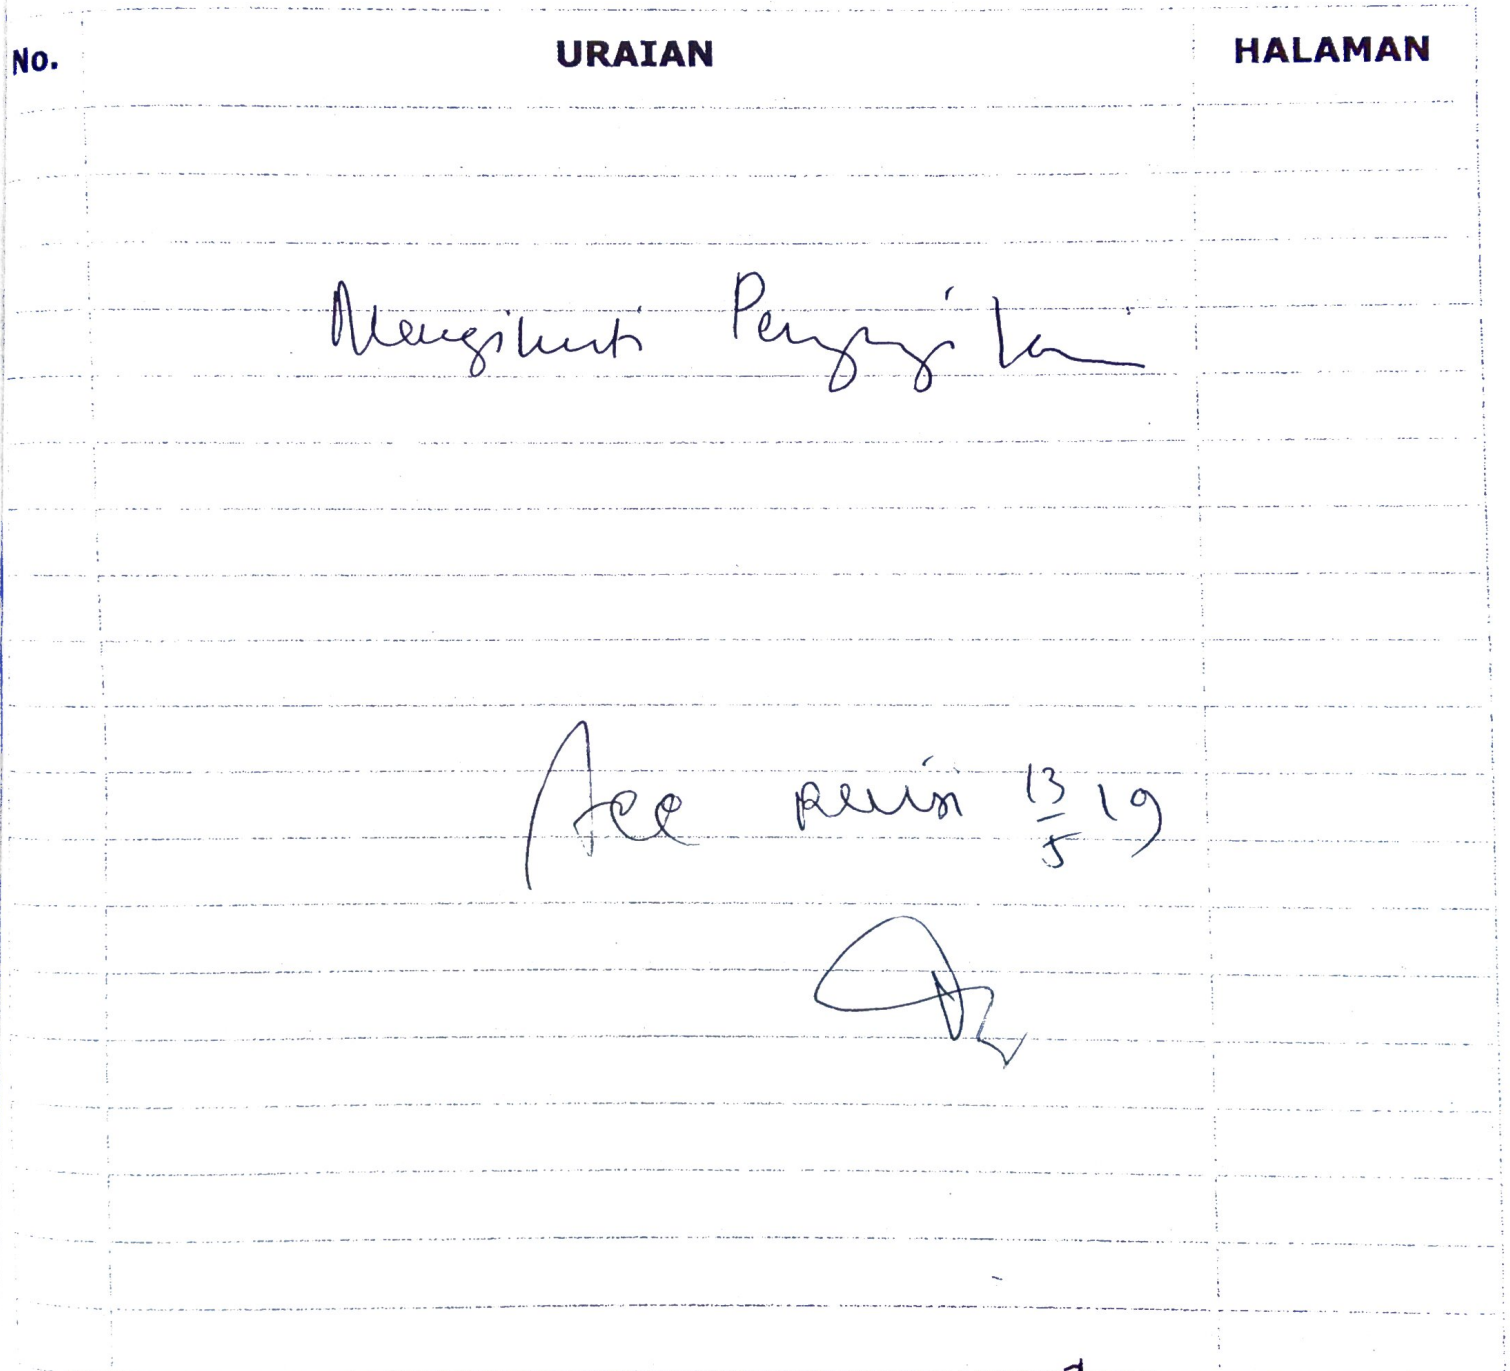 No. URAIAN HALAMAN
Mengikuti Penguji lain
Acc revisi 13/5 19